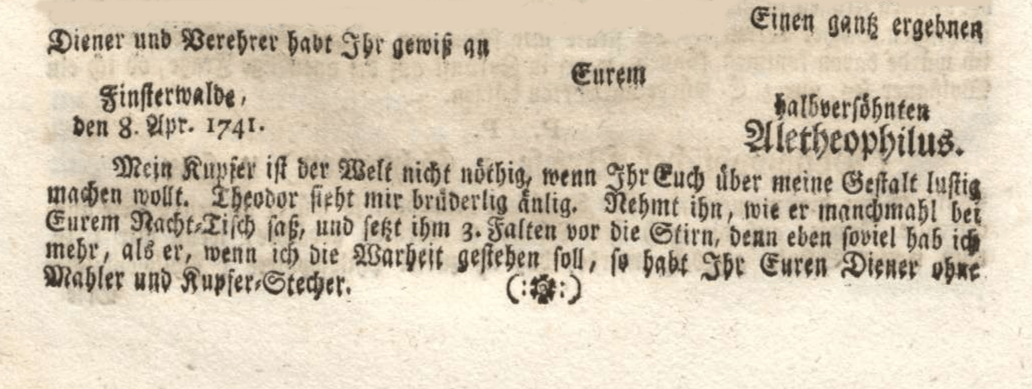 Einen gantz ergebnen
Diener und Verehrer habt Ihr gewiß an
Eurem
Finsterwalde,
den 8. Apr. 1741.
halbversöhnten
Aletheophilus.
Mein Kupfer ist der Welt nicht nöthig, wenn Ihr Euch über meine Gestalt lustig
machen wollt. Theodor sieht mir brüderlig änlig. Nehmt ihn, wie er manchmahl bei
Eurem Nacht-Tisch saß, und setzt ihm 3. Falten vor die Stirn, denn eben soviel hab ich
mehr, als er, wenn ich die Warheit gestehen soll, so habt Ihr Euren Diener ohne
Mahler und Kupfer-Stecher.